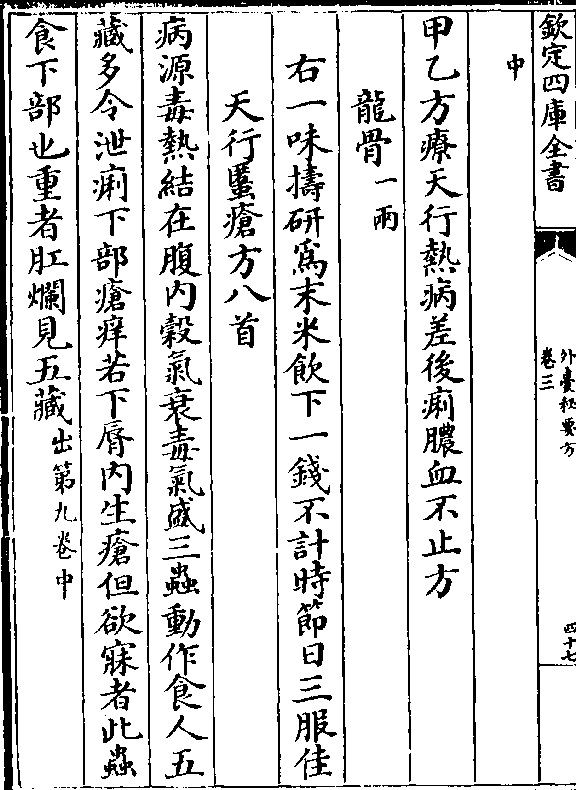 欽定四庫全書
外臺秘要方
卷三
四十七
中
甲乙方療天行熱病差後痢膿血不止方
龍骨一兩
右一味擣研爲末米飲下一錢不計時節日三服佳
天行䘌瘡方八首
病源毒熱結在腹内穀氣衰毒氣盛三蟲動作食人五
藏多令泄痢下部瘡痒若下脣内生瘡但欲寐者此蟲
食下部也重者肛爛見五藏出第九卷中